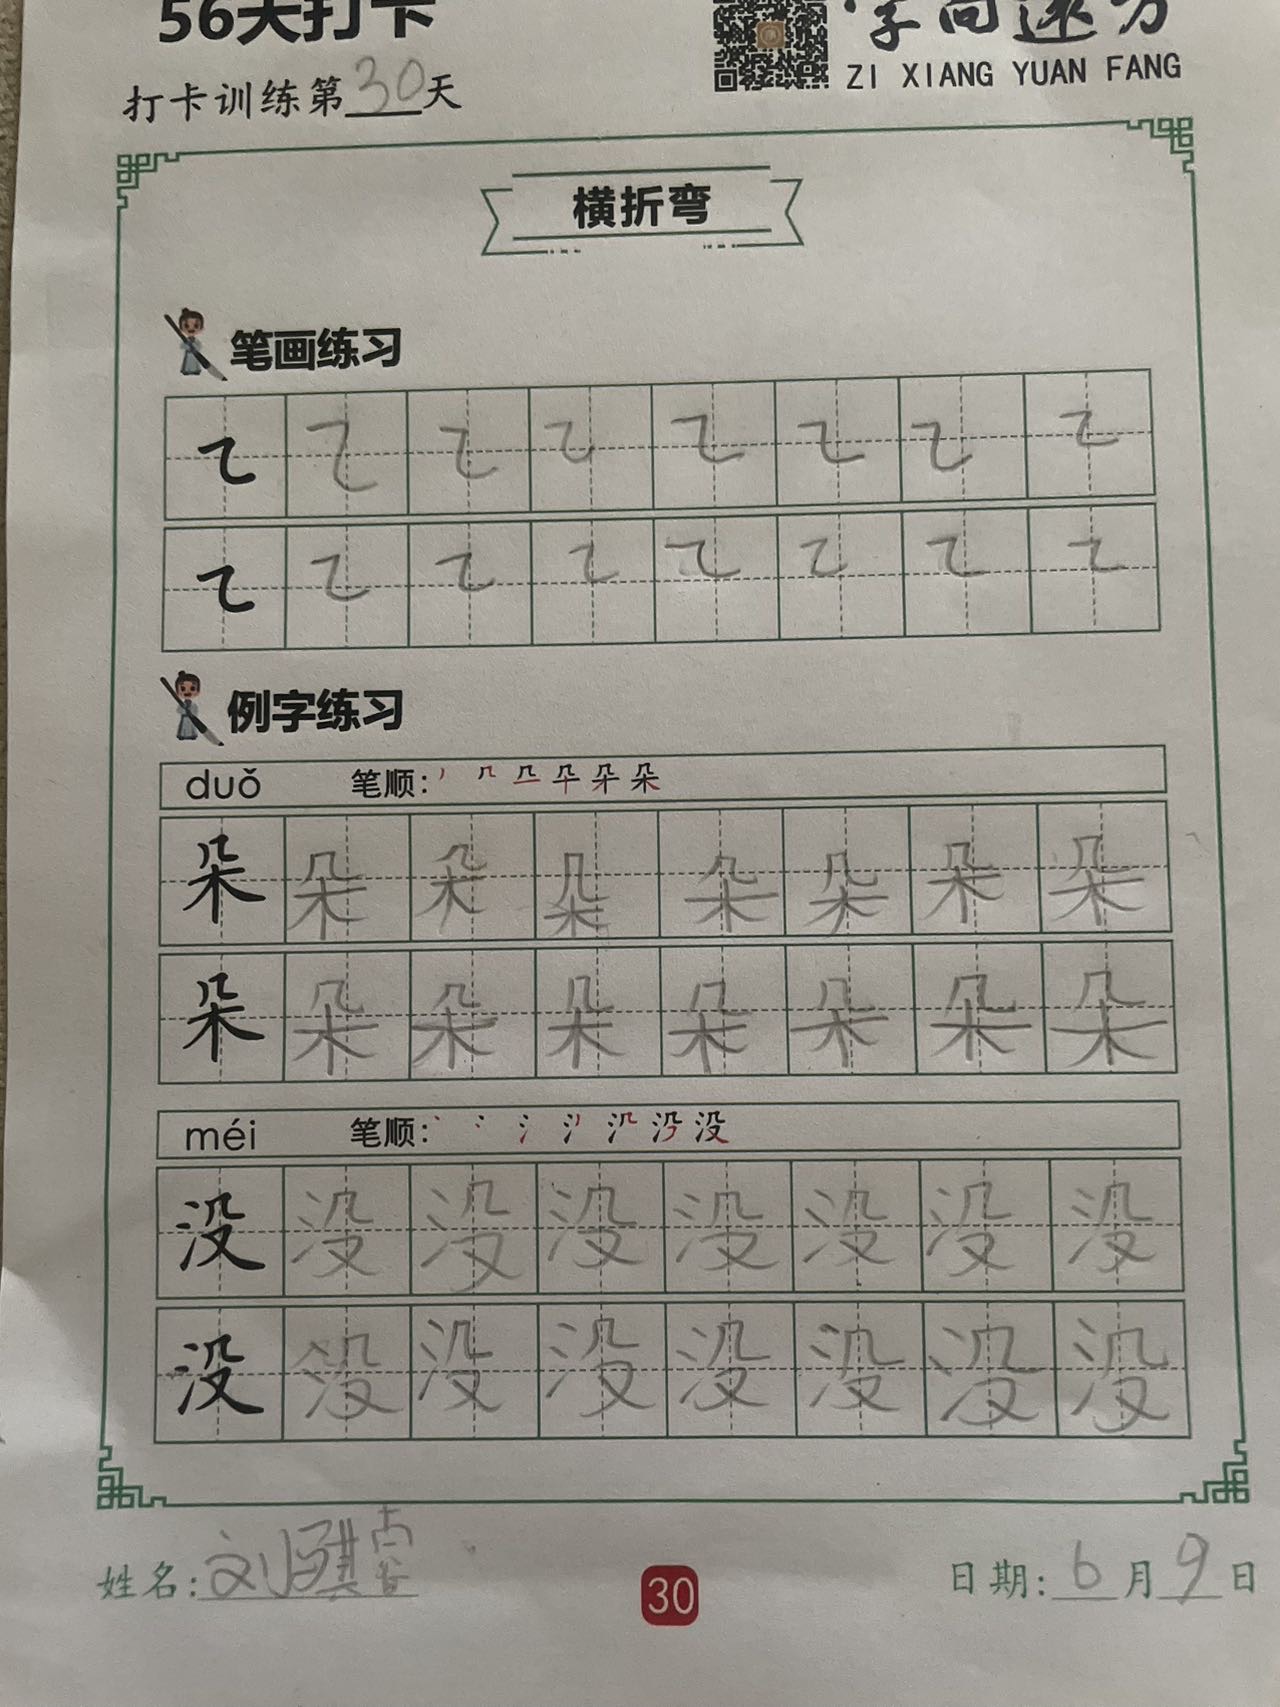 56天打卡
字向远方
ZI XIANG YUAN FANG
打卡训练第30天
横折弯
笔画练习
㇍ ㇍ ㇍ ㇍ ㇍ ㇍ ㇍ ㇍
㇍ ㇍ ㇍ ㇍ ㇍ ㇍ ㇍ ㇍
例字练习
duǒ 笔顺: 朵
朵 朵 朵 朵 朵 朵 朵 朵
朵 朵 朵 朵 朵 朵 朵 朵
méi 笔顺: 没
没 没 没 没 没 没 没 没
没 没 没 没 没 没 没 没
姓名:刘骐睿
30
日期:6月9日